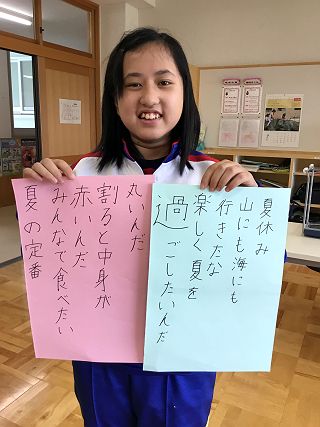 夏休み
山にも海にも
行きたな
楽しく夏を
過ごしたいんだ
丸いんだ
割ると中身が
赤いんだ
みんなで食べたい
夏の定番